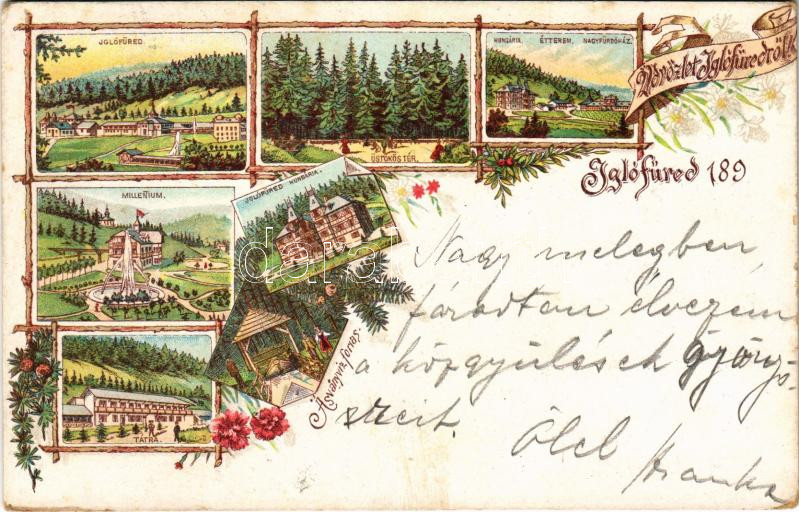 JGLÓFÜRED.
HUNGÁRIA. ÉTTEREM. NAGYFÜRDŐHÁZ.
Üdvözlet Iglófüredről!
ÜSTÖKÖS TÉR.
Iglófüred 189
MILLENIUM.
JGLÓFÜRED HUNGÁRIA.
Ásványvíz forrás.
TÁTRA.
Nagy melegben,
fáradtan élvezem
a közgyűlések gyönyö-
rzeit.
Ölel
Aranka
darabanth